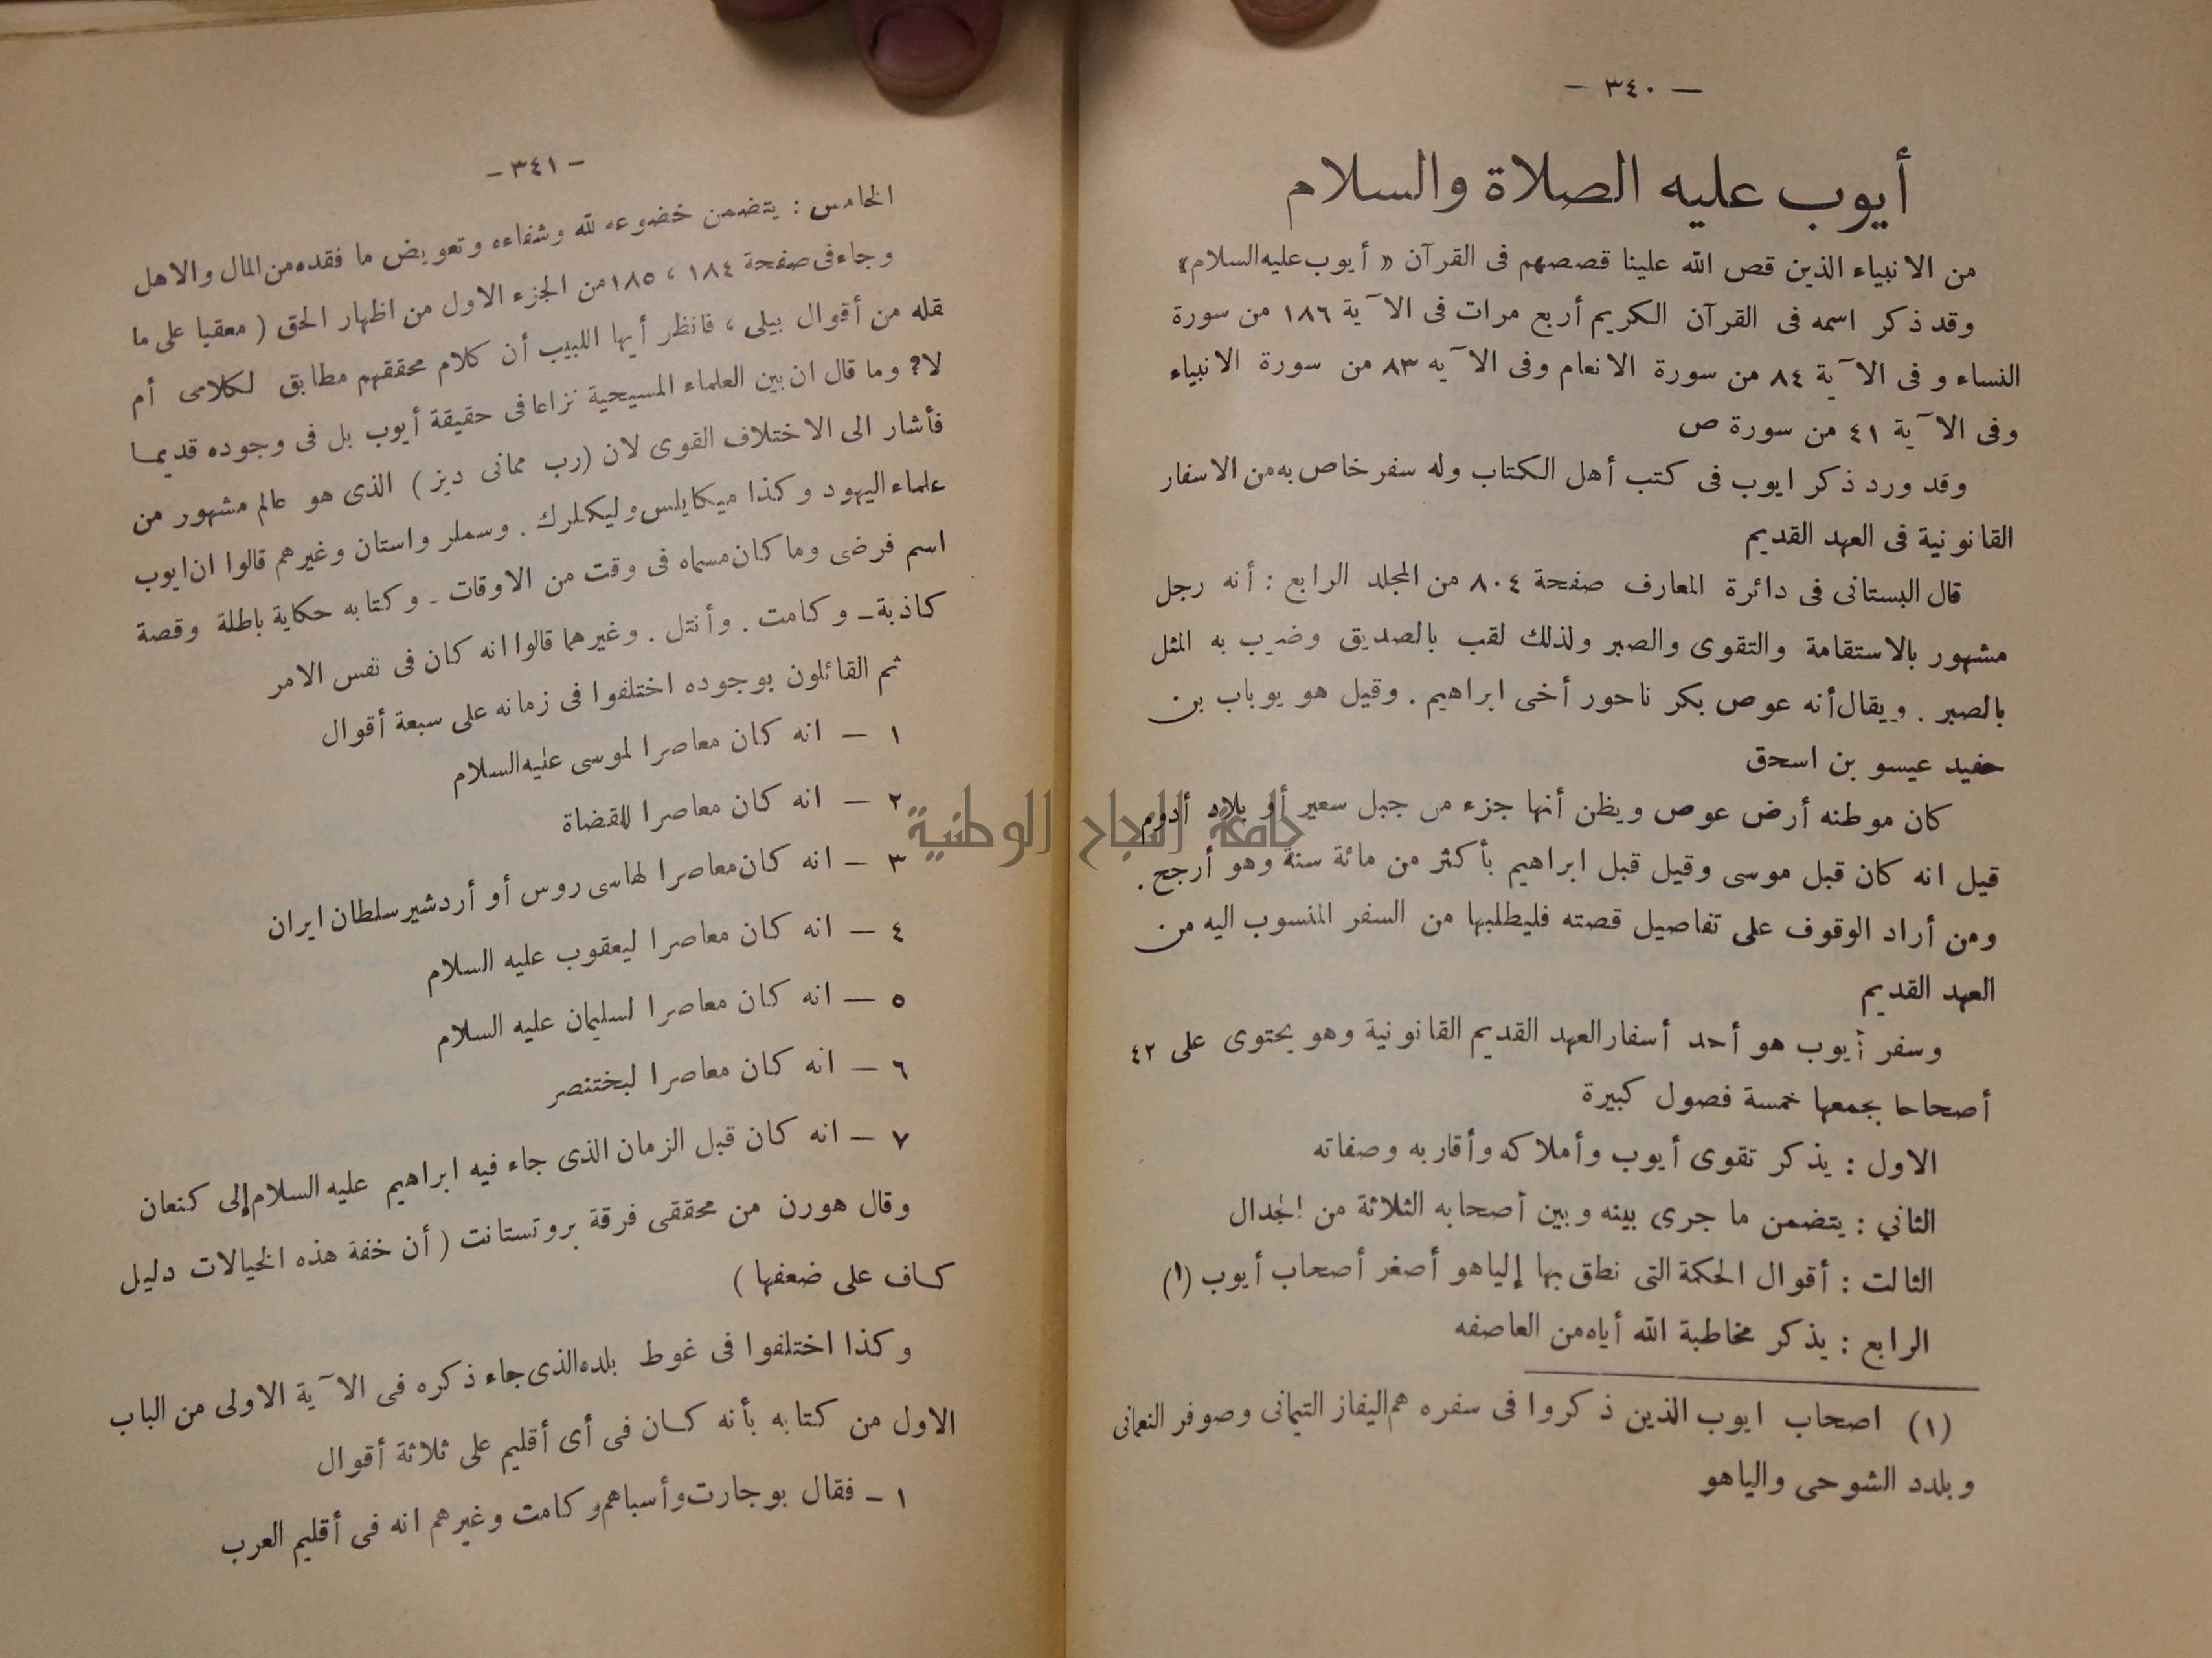 — ٣٤٠ —
أيوب عليه الصلاة والسلام
من الانبياء الذين قص الله علينا قصصهم فى القرآن « أيوب عليه السلام»
وقد ذكر اسمه فى القرآن الكريم أربع مرات فى الآية ١٨٦ من سورة
النساء و فى الآية ٨٤ من سورة الانعام وفى الآيه ٨٣ من سورة الانبياء
وفى الآية ٤١ من سورة ص
وقد ورد ذكر ايوب فى كتب أهل الكتاب وله سفر خاص به من الاسفار
القانونية فى العهد القديم
قال البستانى فى دائرة المعارف صفحة ٨٠٤ من المجلد الرابع : أنه رجل
مشهور بالاستقامة والتقوى والصبر ولذلك لقب بالصديق وضرب به المثل
بالصبر . ويقال أنه عوص بكر ناحور أخى ابراهيم . وقيل هو يوباب بن
حفيد عيسو بن اسحق
كان موطنه أرض عوص ويظن أنها جزء من جبل سعير أو بلاد أدوم
قيل انه كان قبل موسى وقيل قبل ابراهيم بأكثر من مائة سنة وهو أرجح .
ومن أراد الوقوف على تفاصيل قصته فليطلبها من السفر المنسوب اليه من
العهد القديم
وسفر أيوب هو أحد أسفار العهد القديم القانونية وهو يحتوى على ٤٢
أصحاحا بجمعها خمسة فصول كبيرة
الاول : يذكر تقوى أيوب وأملاكه وأقاربه وصفاته
الثاني : يتضمن ما جرى بينه وبين أصحابه الثلاثة من الجدال
الثالث : أقوال الحكمة التى نطق بها إلياهو أصغر أصحاب أيوب (١)
الرابع : يذكر مخاطبة الله أياه من العاصفه
(١) اصحاب ايوب الذين ذكروا فى سفره هم اليفاز التيمانى وصوفر النعمانى
وبلدد الشوحى والياهو
— ٣٤١ —
الخامس : يتضمن خضوعه لله وشفاءه وتعويض ما فقده من المال والاهل
وجاء فى صفحة ١٨٤ ، ١٨٥ من الجزء الاول من اظهار الحق ( معقبا على ما
قله من أقوال بيلى ، فانظر أيها اللبيب أن كلام محققهم مطابق لكلامى أم
لا؟ وما قال ان بين العلماء المسيحية نزاعا فى حقيقة أيوب بل فى وجوده قديما
فأشار الى الاختلاف القوى لان (رب ممانى ديز ) الذى هو عالم مشهور من
علماء اليهود وكذا ميكايلس وليكلرك . وسملر واستان وغيرهم قالوا ان ايوب
اسم فرضى وما كان مسماه فى وقت من الاوقات - وكتابه حكاية باطلة وقصة
كاذبة - وكامت . وأنتل . وغيرهما قالوا انه كان فى نفس الامر
ثم القائلون بوجوده اختلفوا فى زمانه على سبعة أقوال
١ — انه كان معاصرا لموسى عليه السلام
٢ — انه كان معاصرا للقضاة
٣ — انه كان معاصرا لهاسى روس أو أردشير سلطان ايران
٤ — انه كان معاصرا ليعقوب عليه السلام
٥ — انه كان معاصرا لسليمان عليه السلام
٦ — انه كان معاصرا لبختنصر
٧ — انه كان قبل الزمان الذى جاء فيه ابراهيم عليه السلام إلى كنعان
وقال هورن من محققى فرقة بروتستانت ( أن خفة هذه الخيالات دليل
كاف على ضعفها )
وكذا اختلفوا فى غوط بلده الذى جاء ذكره فى الآية الاولى من الباب
الاول من كتابه بأنه كان فى أى أقليم على ثلاثة أقوال
١ - فقال بوجارت وأسباهم وكامت وغيرهم انه فى أقليم العرب
جامعة النجاح الوطنية